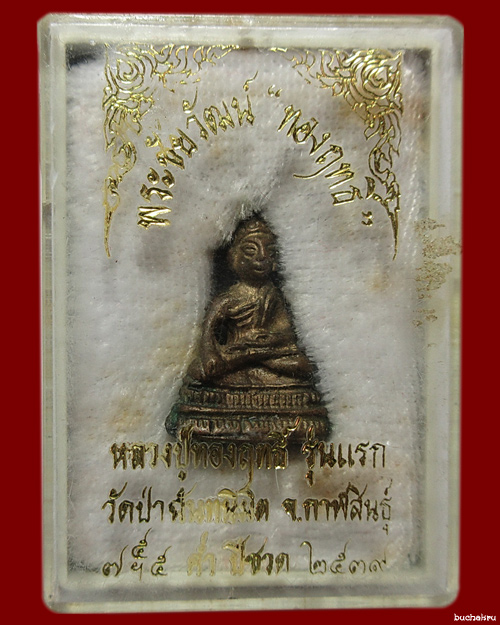 พระชัยวัฒน์ "ทองฤทธิ์"
หลวงปู่ทองฤทธิ์ รุ่นแรก
วัดป่า จ.กาฬสินธุ์
๗ ๕ ฯ ๕ ค่ำ ปีชวด ๒๕๓๙
buchaisru